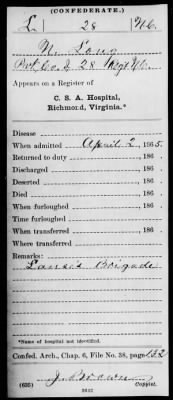 (CONFEDERATE.)
L 28 N.C.
N. Long
Pvt Co. I, 28 Regt N.C.
Appears on a Register of
C. S. A. Hospital,
Richmond, Virginia.*
Disease
When admitted April 2, 1865.
Returned to duty , 186 .
Discharged , 186 .
Deserted , 186 .
Died , 186 .
When furloughed , 186 .
Time furloughed
When transferred , 186 .
Where transferred
Remarks:
Lane's Brigade
*Name of hospital not identified.
Confed. Arch., Chap. 6, File No. 38, page 132
J. Brown
(635) Copyist.